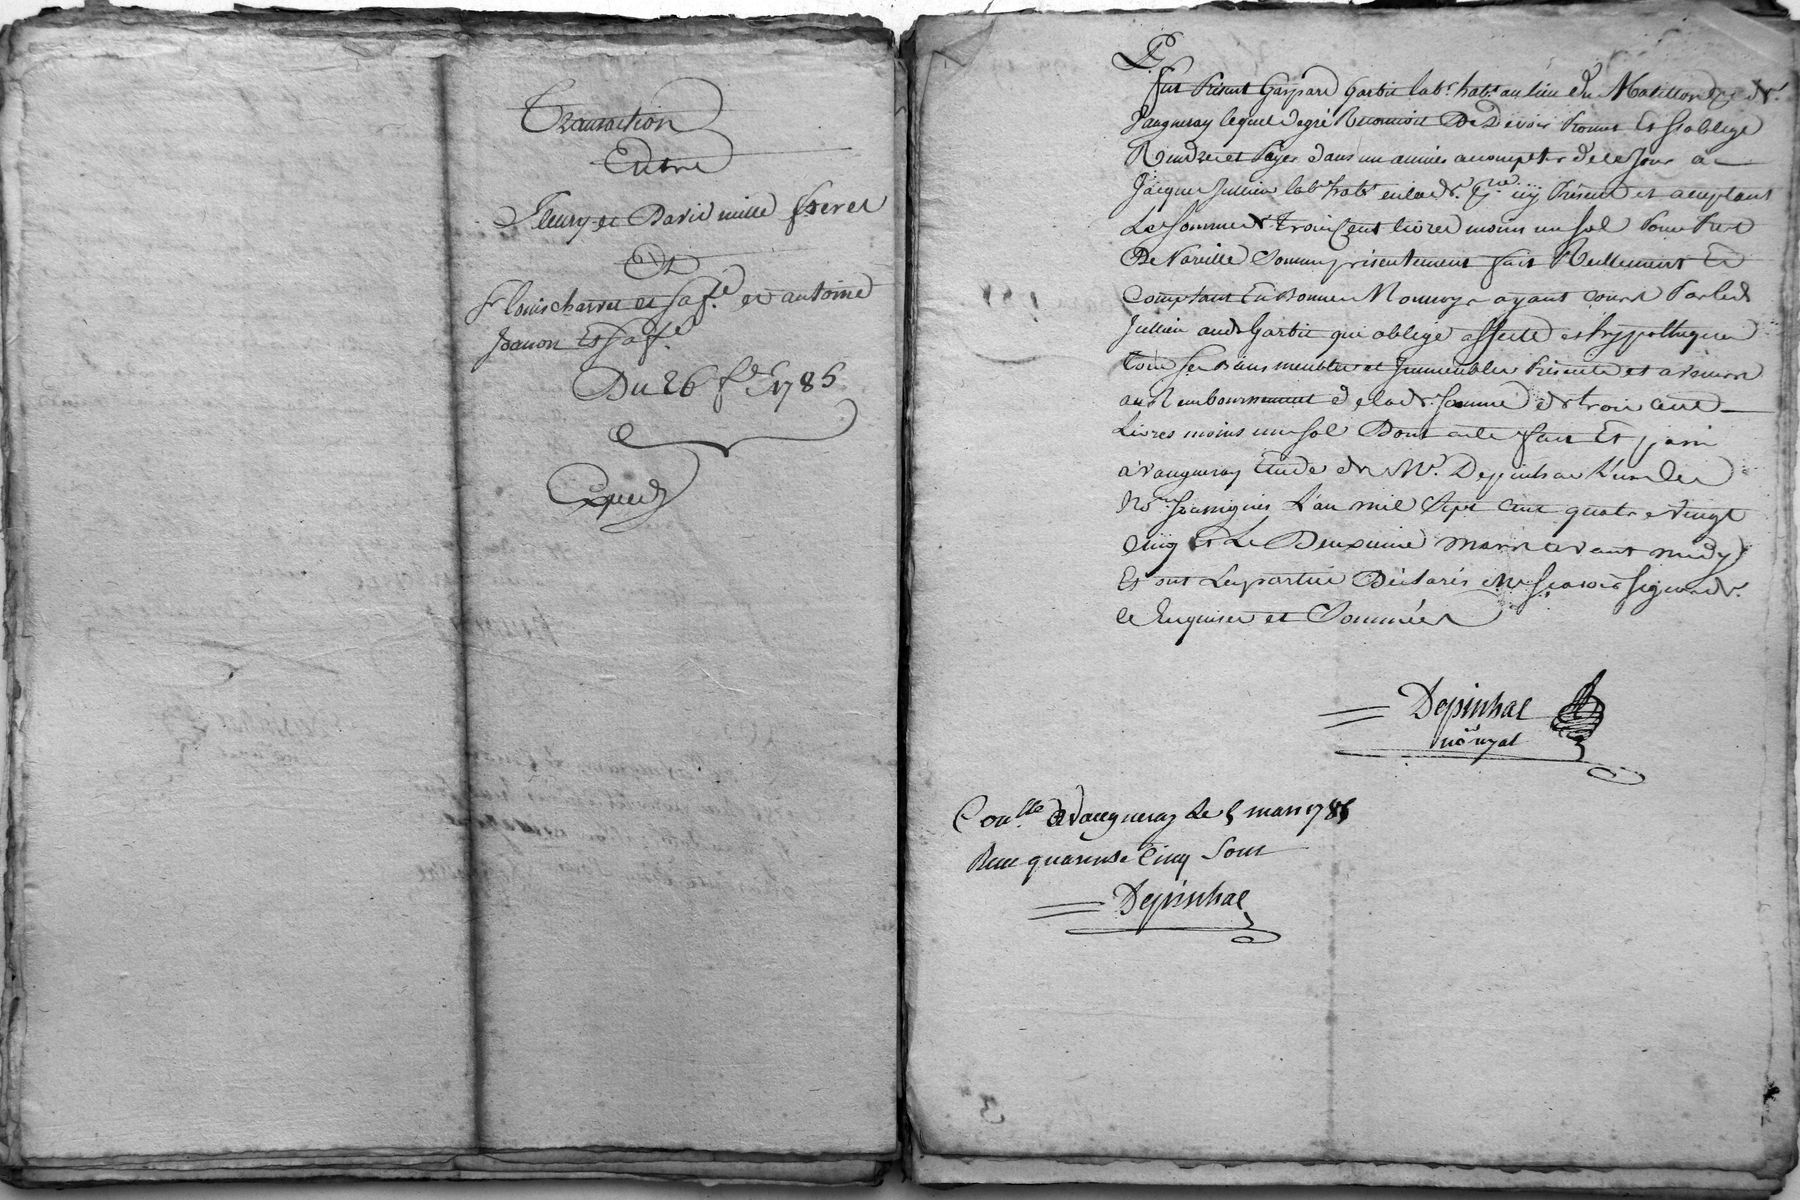 Transaction
Entre
Fleury et David mille freres
Et
Sr louis charvet et sa fe et antoine
Joanon Et sa fe
Du 26 fer 1785
Exped
Fut Présent Gaspard Garbit labr habt au lieu du Matillon de
Vaugneray lequel de gré Reconnoit De Devoir Promet Et s'oblige
Rendre et Payer dans un année a compter de ce Jour a
Jacque Jullien labr habt en lad. icy Présent et acceptant
La Somme de trois Cent livres moins un sol Pour Pret
De Pareille Somme présentement fait Réellement Et
Comptant En Bonne Monnoye ayant cours Par led
Jullien aud Garbit qui oblige affecte et hyppotheque
tous Ses Biens meubles et Immeubles Présents et avenir
au Remboursement de lad. Somme de trois cent
Livres moins un sol Dont acte fait Et passé
a Vaugneray Etude de Me Depinhac L'un des
Nores Soussignés L'an mil Sept cent quatre vingt
Cinq Et Le Deuxieme mars avant midy
Et ont Les parties Déclarés ne Scavoir Signer de
ce Enquises et Sommées
Depinhac
nore royal
Conllé a Vaugneray le 5 mars 1785
Recu quarente Cinq Sous
Depinhac
3